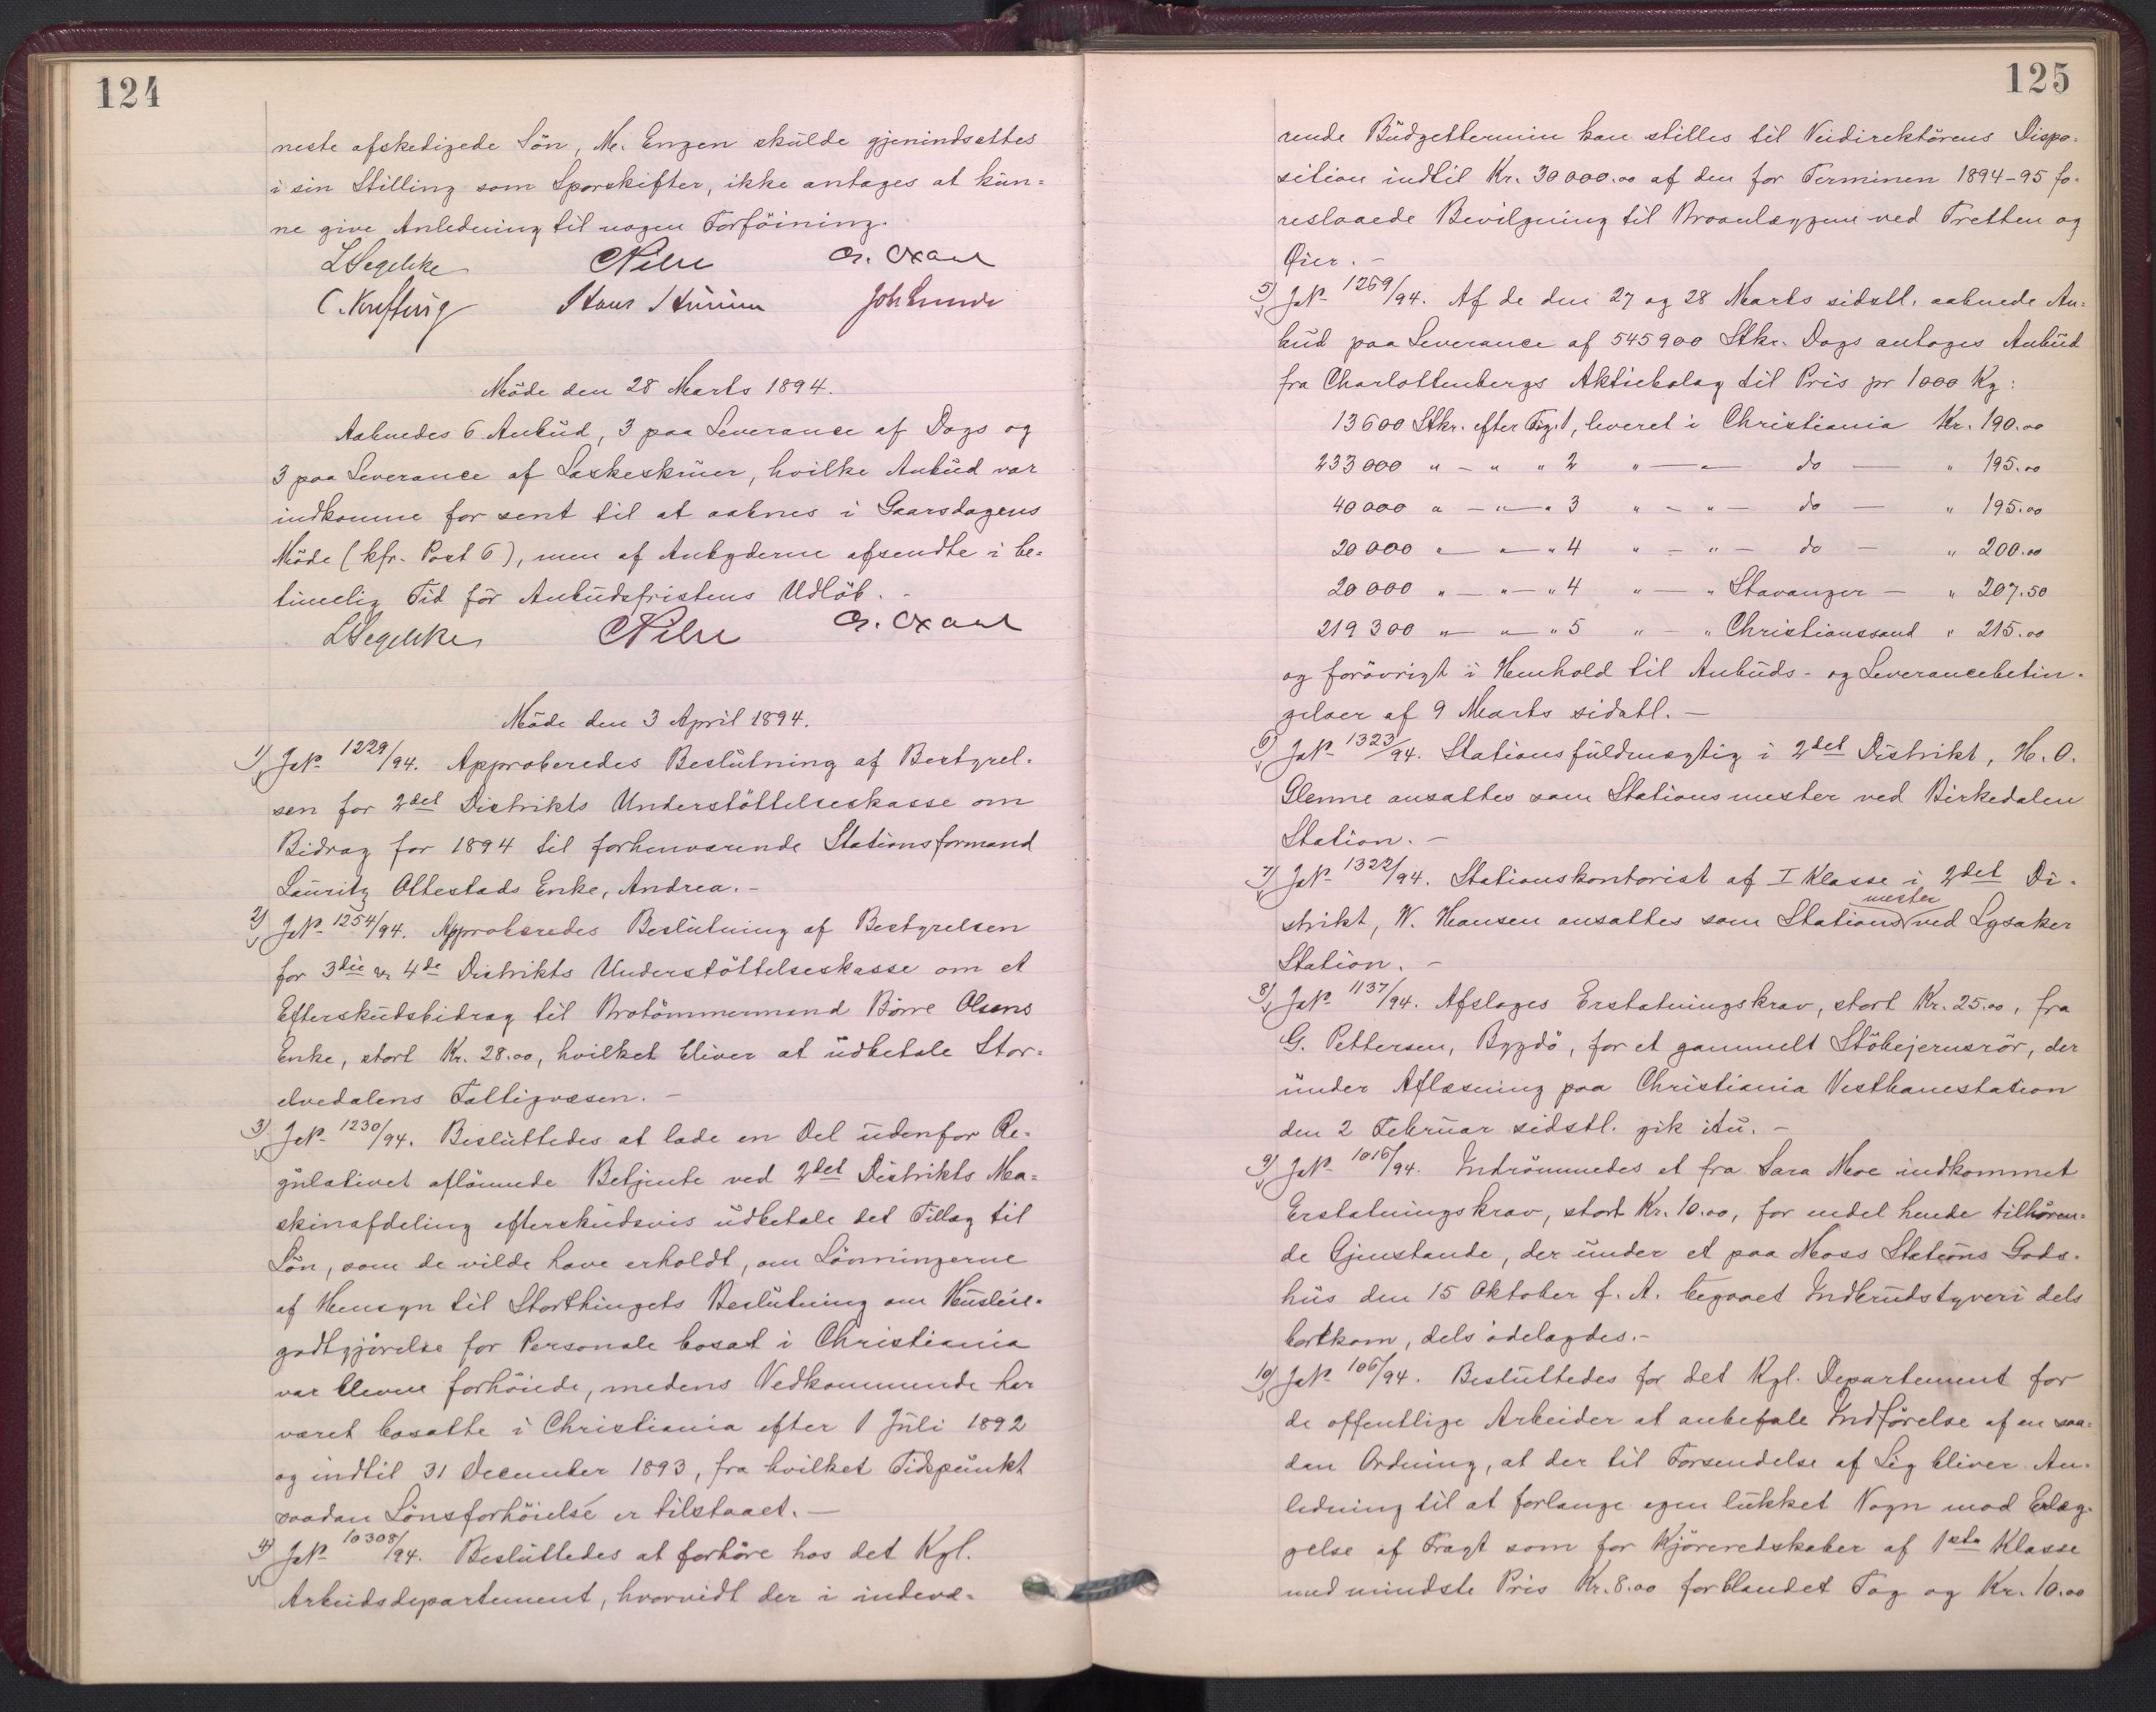 124
neste afskedigede Sön, M. Engen skulde gjenindsættes
i sin Stilling som Sporskifter, ikke antages at kun-
ne give Anledning til nogen Forföining.
LSegelcke CPihl
C. Krefting Joh Lunde
Möde den 28 Marts 1894.
Aabnedes 6 Anbud, 3 paa Leverance af Dogs og
3 paa Leverance af Laskeskruer, hvilke Anbud var
indkomne for sent til at aabnes i Gaarsdagens
Möde (kfr. Post 6), men af Anbyderne afsendte i be-
timelig Tid för Anbudsfristens Udlöb. -
LSegelcke CPihl
Möde den 3 April 1894.
1) JNo 1229/94. Approberedes Beslutning af Bestyrel-
sen for 2det Distrikts Understöttelseskasse om
Bidrag for 1894 til forhenværende Stationsformand
Lauritz Ottestads Enke, Andrea. -
2) JNo 1254/94. Approberedes Beslutning af Bestyrelsen
for 3die & 4de Distrikts Understöttelseskasse om et
Efterskudsbidrag til Brotömmermand Börre Olsens
Enke, stort Kr. 28.00, hvilket bliver at udbetale Stor-
elvedalens Fattigvæsen. -
3) JNo 1230/94. Besluttedes at lade en Del udenfor Re-
gulativet aflönnede Betjente ved 2det Distrikts Ma-
skinafdeling efterskudsvis udbetale det Tillæg til
Lön, som de vilde have erholdt, om Lönningerne
af Hensyn til Storthingets Beslutning om Husleie-
godtgjörelse for Personale bosat i Christiania
var blevne forhöiede, medens Vedkommende har
været bosatte i Christiania efter 1 Juli 1892
og indtil 31 December 1893, fra hvilket Tidspunkt
saadan Lönsforhöielse er tilstaaet. -
4) JNo 10308/94. Besluttedes at forhöre hos det Kgl.
Arbeidsdepartement, hvorvidt der i indevæ-
125
rende Budgettermin kan stilles til Veidirektörens Dispo-
sition indtil Kr. 30 000.00 af den for Terminen 1894-95 fo-
reslaaede Bevilgning til Broanlæggene ved Tretten og
Öier. -
5) JNo 1269/94. Af de den 27 og 28 Marts sidstl. aabnede An-
bud paa Leverance af 545900 Stkr. Dogs antoges Anbud
fra Charlottenbergs Aktiebolag til Pris pr 1000 Kg:
13600 Stkr. efter Fig. 1, leveret i Christiania Kr. 190.00
233000 " - " " 2 " - " - do - " 195.00
40000 " - " - " 3 " - " - do - " 195.00
20000 " - " - " 4 " - " - do - " 200.00
20000 " - " - " 4 " - " Stavanger - " 207.50
219300 " - " - " 5 " - " Christianssand " 215.00
og forövrigt i Henhold til Anbuds- og Leverancebetin-
gelser af 9 Marts sidstl. -
6) JNo 1323/94. Stationsfuldmægtig i 2det Distrikt, H. O.
Glenne ansattes som Stationsmester ved Birkedalen
Station. -
7) JNo 1322/94. Stationskontorist af I Klasse i 2det Di-
strikt, W. Hansen ansattes som Stationsmester ved Lysaker
Station. -
8) JNo 1137/94. Afsloges Erstatningskrav, stort Kr. 25.00, fra
G. Pettersen, Bygdö, for et gammelt Stöbejernsrör, der
under Aflæsning paa Christiania Vestbanestation
den 2 Februar sidstl. gik itu. -
9) JNo 1016/94. Indrömmedes et fra Sara Moe indkommet
Erstatningskrav, stort Kr. 10.00, for endel hende tilhören-
de Gjenstande, der under et paa Moss Stations Gods-
hus den 15 Oktober f. A. begaaet Indbrudstyveri dels
bortkom, dels ödelagdes. -
10) JNo 106/94. Besluttedes for det Kgl. Departement for
de offentlige Arbeider at anbefale Indförelse af en saa-
dan Ordning, at der til Forsendelse af Lig bliver An-
ledning til at forlange egen lukket Vogn mod Erlæg-
gelse af Fragt som for Kjöreredskaber af 1ste Klasse
med mindste Pris Kr. 8.00 for blandet Tog og Kr. 10.00